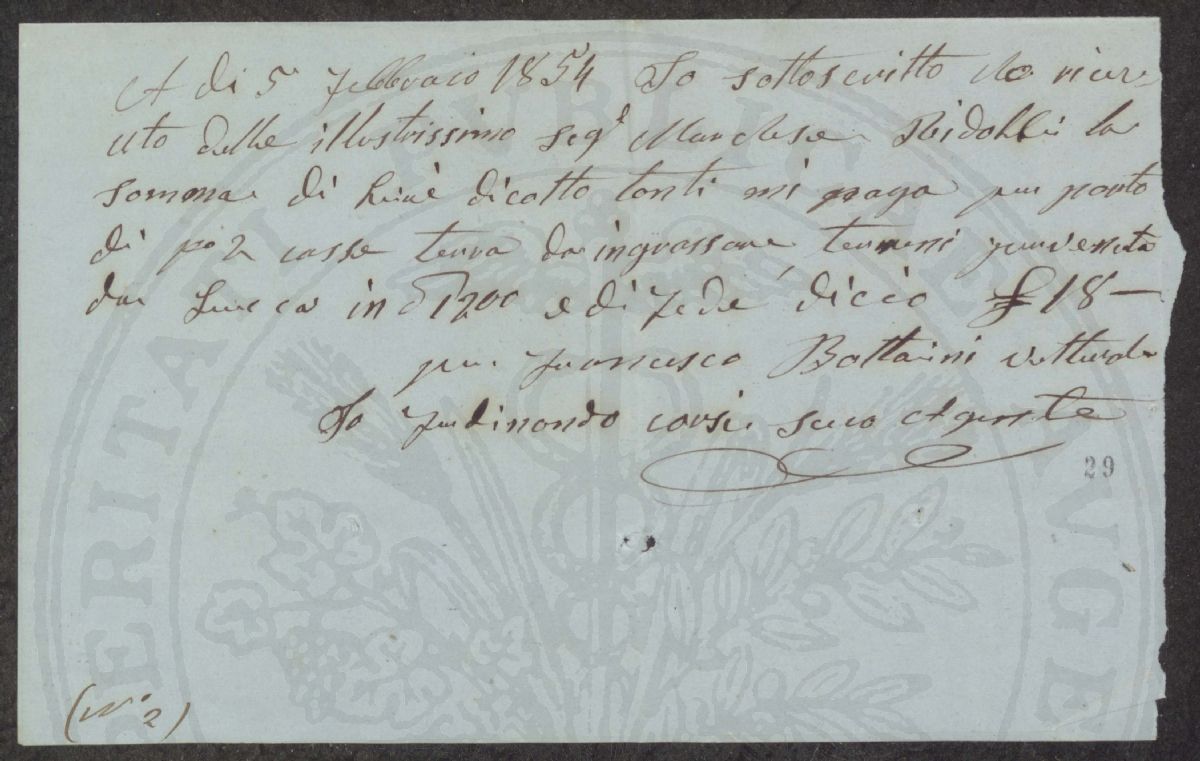 A di 5 Febbraio 1854 Io sottoscritto ho rice-
uto dalle illustrissimo Seg.r Marchese Ridolfi la
somma di Lire dicotto tanti mi paga per porto
di casse terra da ingrassare terreni provenuta
da Lucca in 1200 e di fede dicio £ 18 —
per Francesco Bottaini vetturale
Io Ferdinando corsi suo Agente
29
(N° 2)
PERITATI RURALI CAVE AVGE